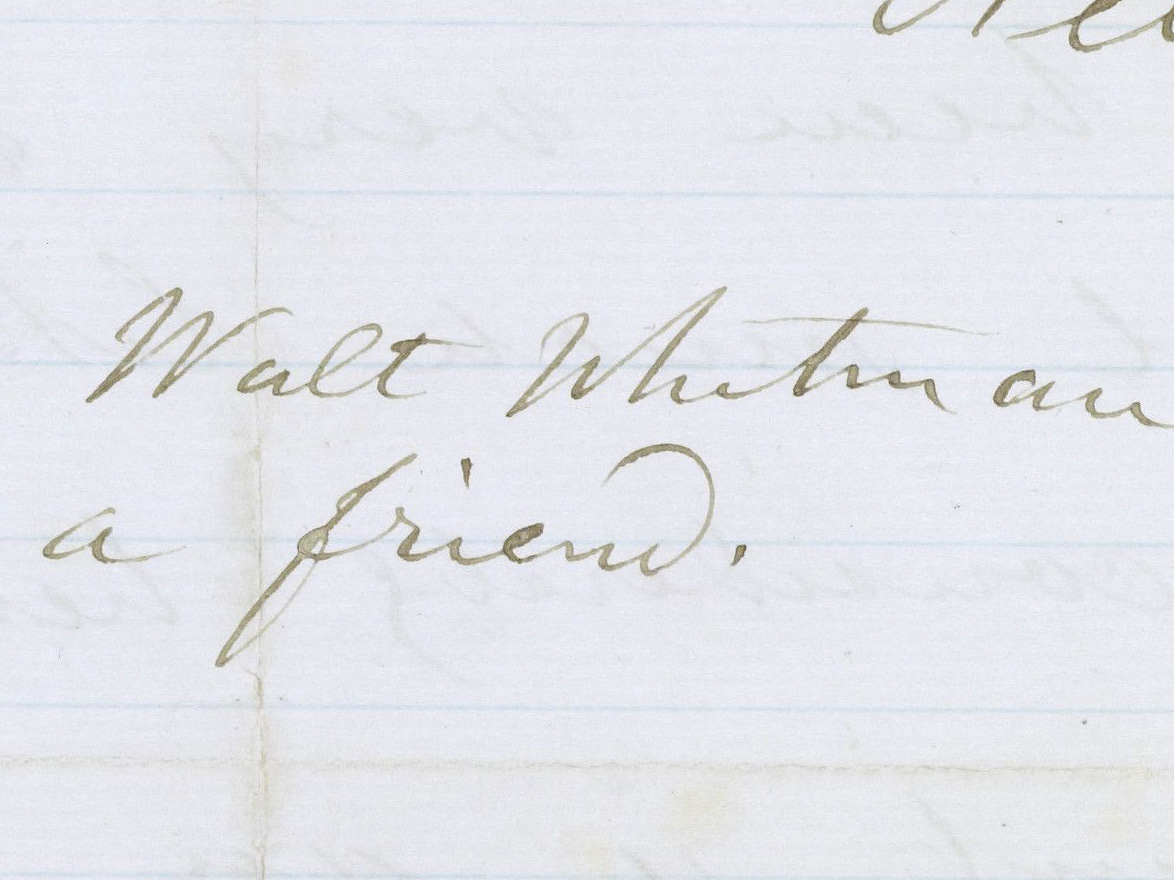 Walt Whitman
a friend.